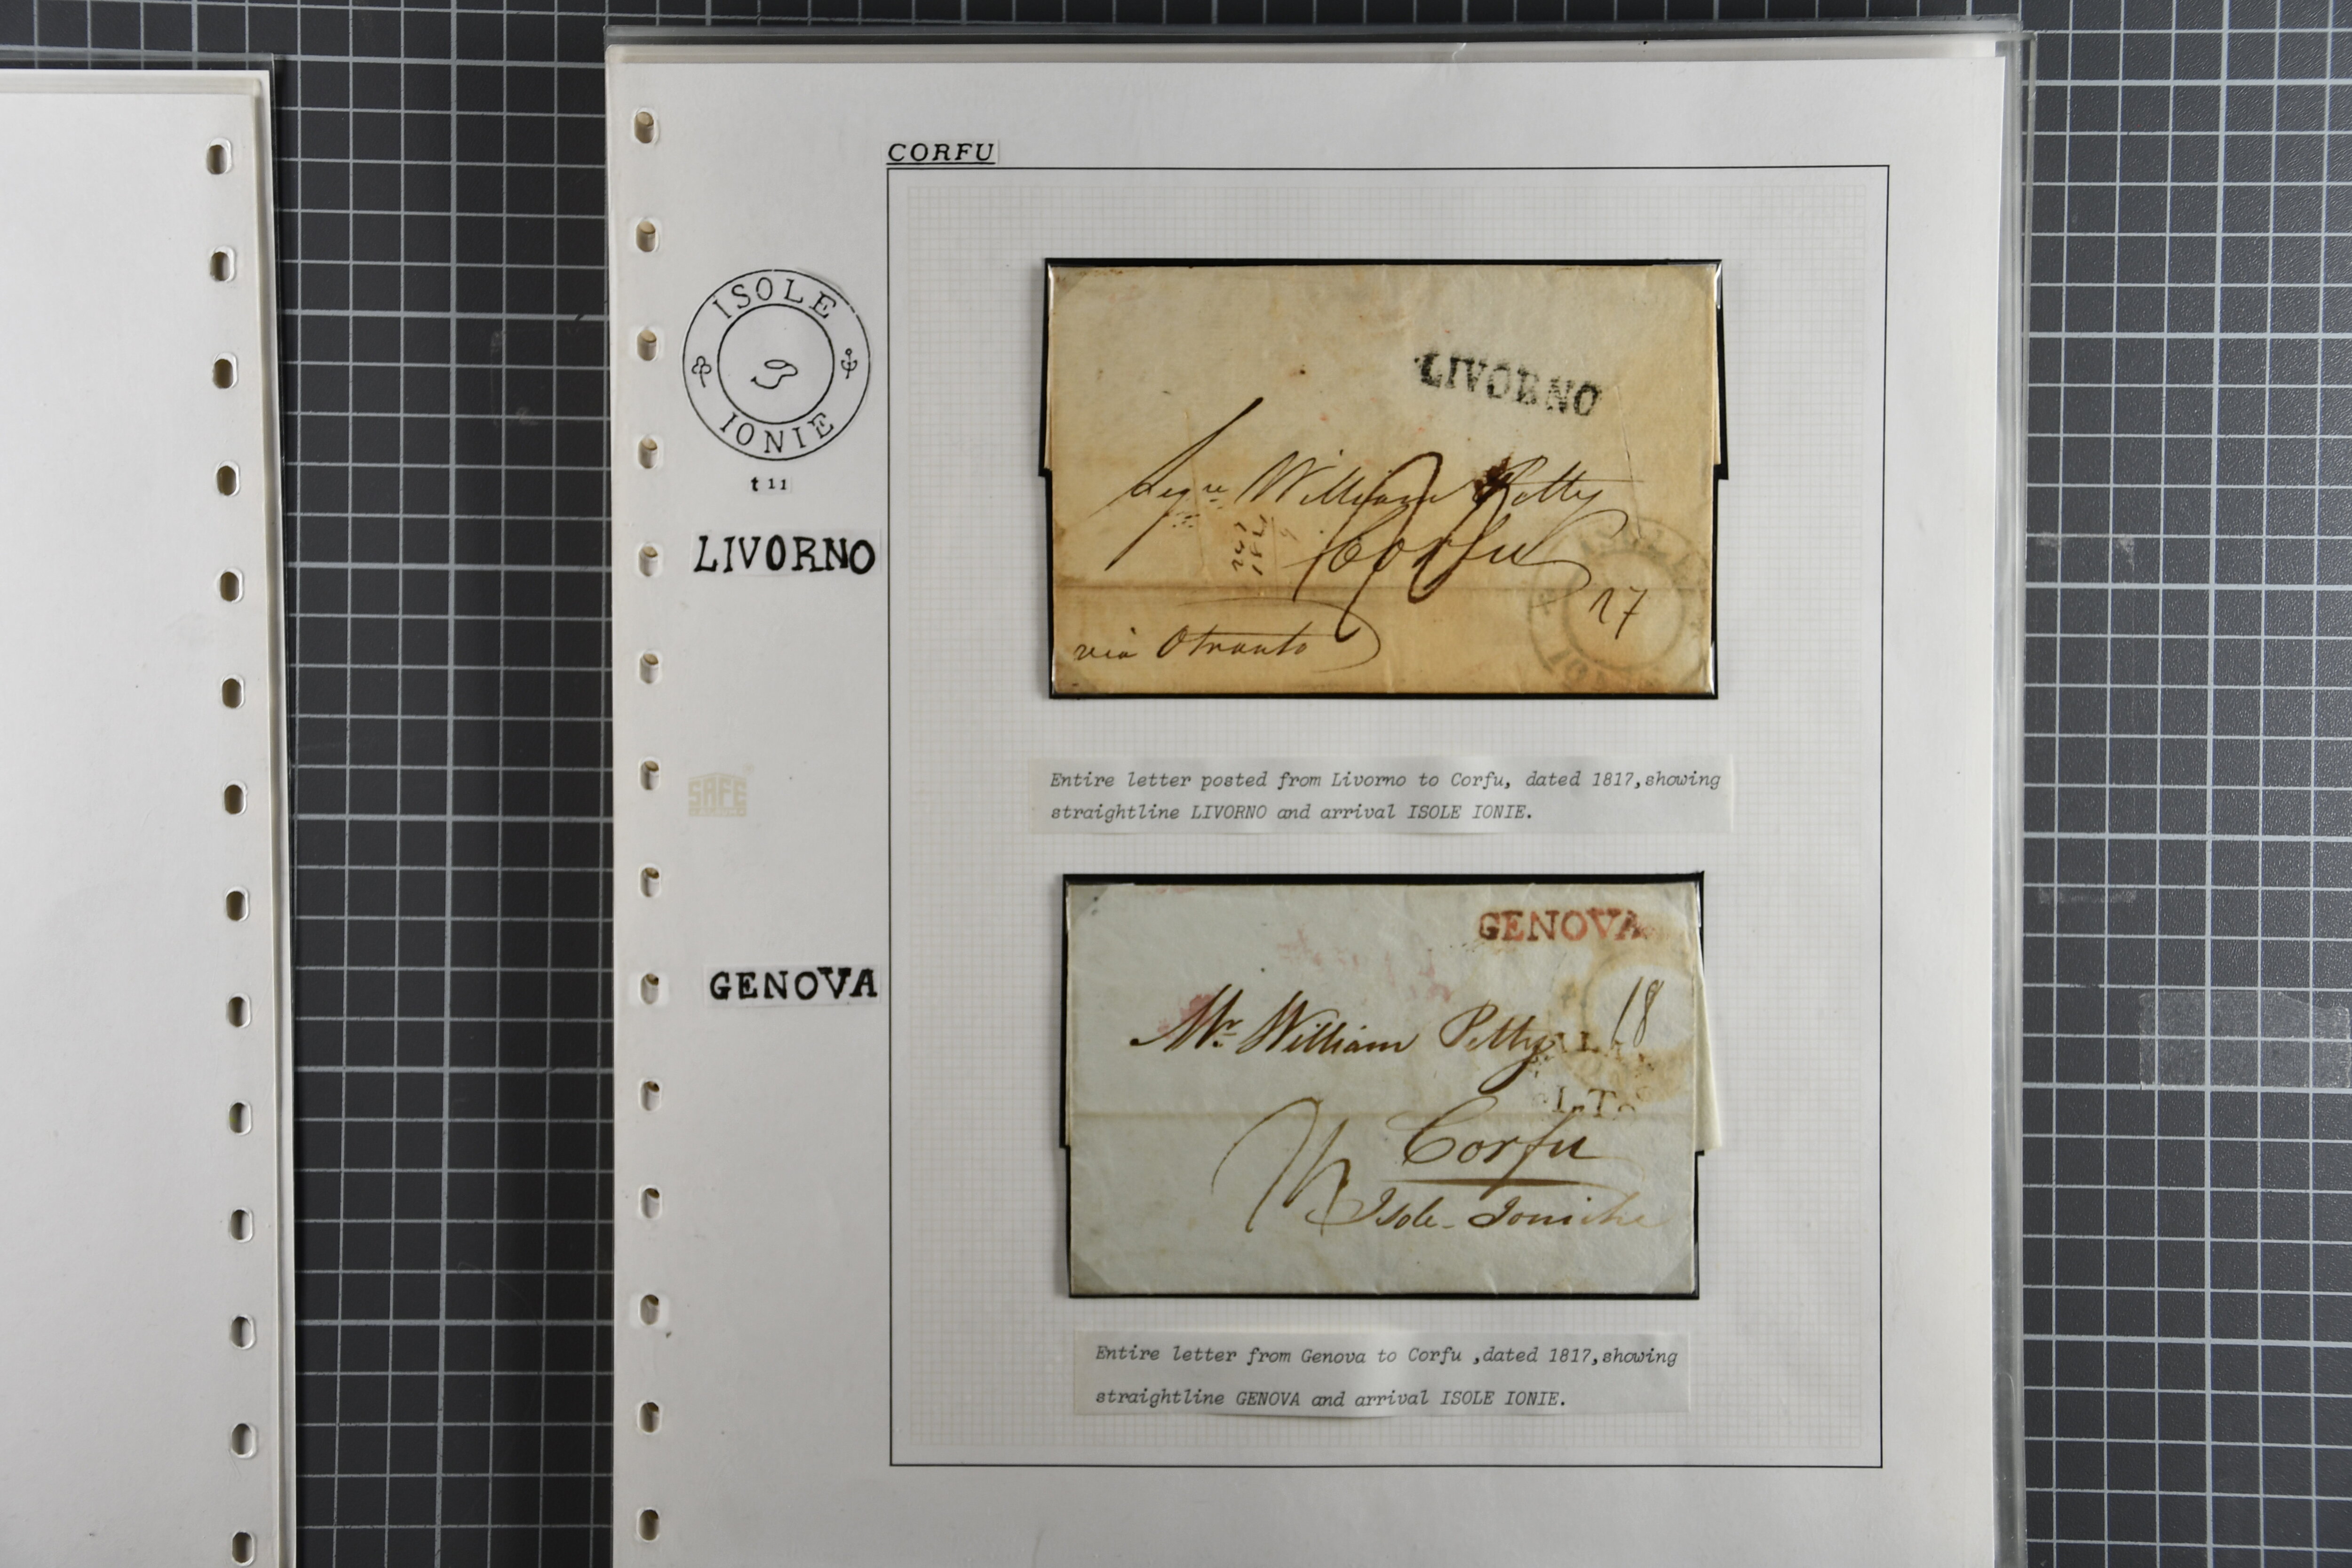 CORFU
ISOLE
IONIE
t 11
LIVORNO
LIVORNO
William Petty
Corfu
17
via Otranto
SAFE
Entire letter posted from Livorno to Corfu, dated 1817,showing
straightline LIVORNO and arrival ISOLE IONIE.
GENOVA
GENOVA
18
Mr. William Petty
Corfu
Isole Ioniche
Entire letter from Genova to Corfu ,dated 1817,showing
straightline GENOVA and arrival ISOLE IONIE.